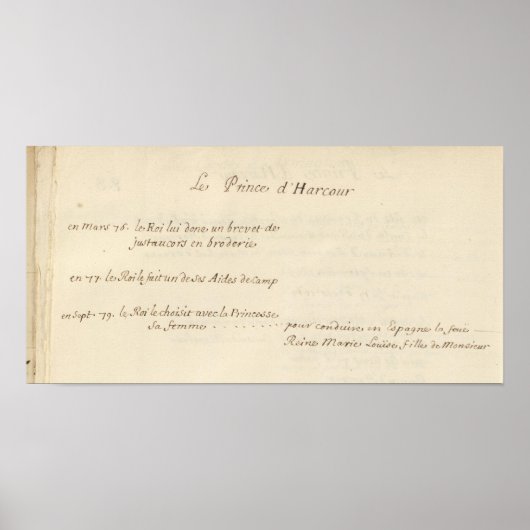 Le Prince d'Harcour
en Mars 76. le Roi lui done un brevet de
justaucors en broderie
en 77. le Roi le fait un de ses Aides de Camp
en Sept. 79. le Roi le choisit avec la Princesse
sa femme . . . . . . . . pour conduire en Espagne la feue
Reine Marie Louise fille de Monsieur